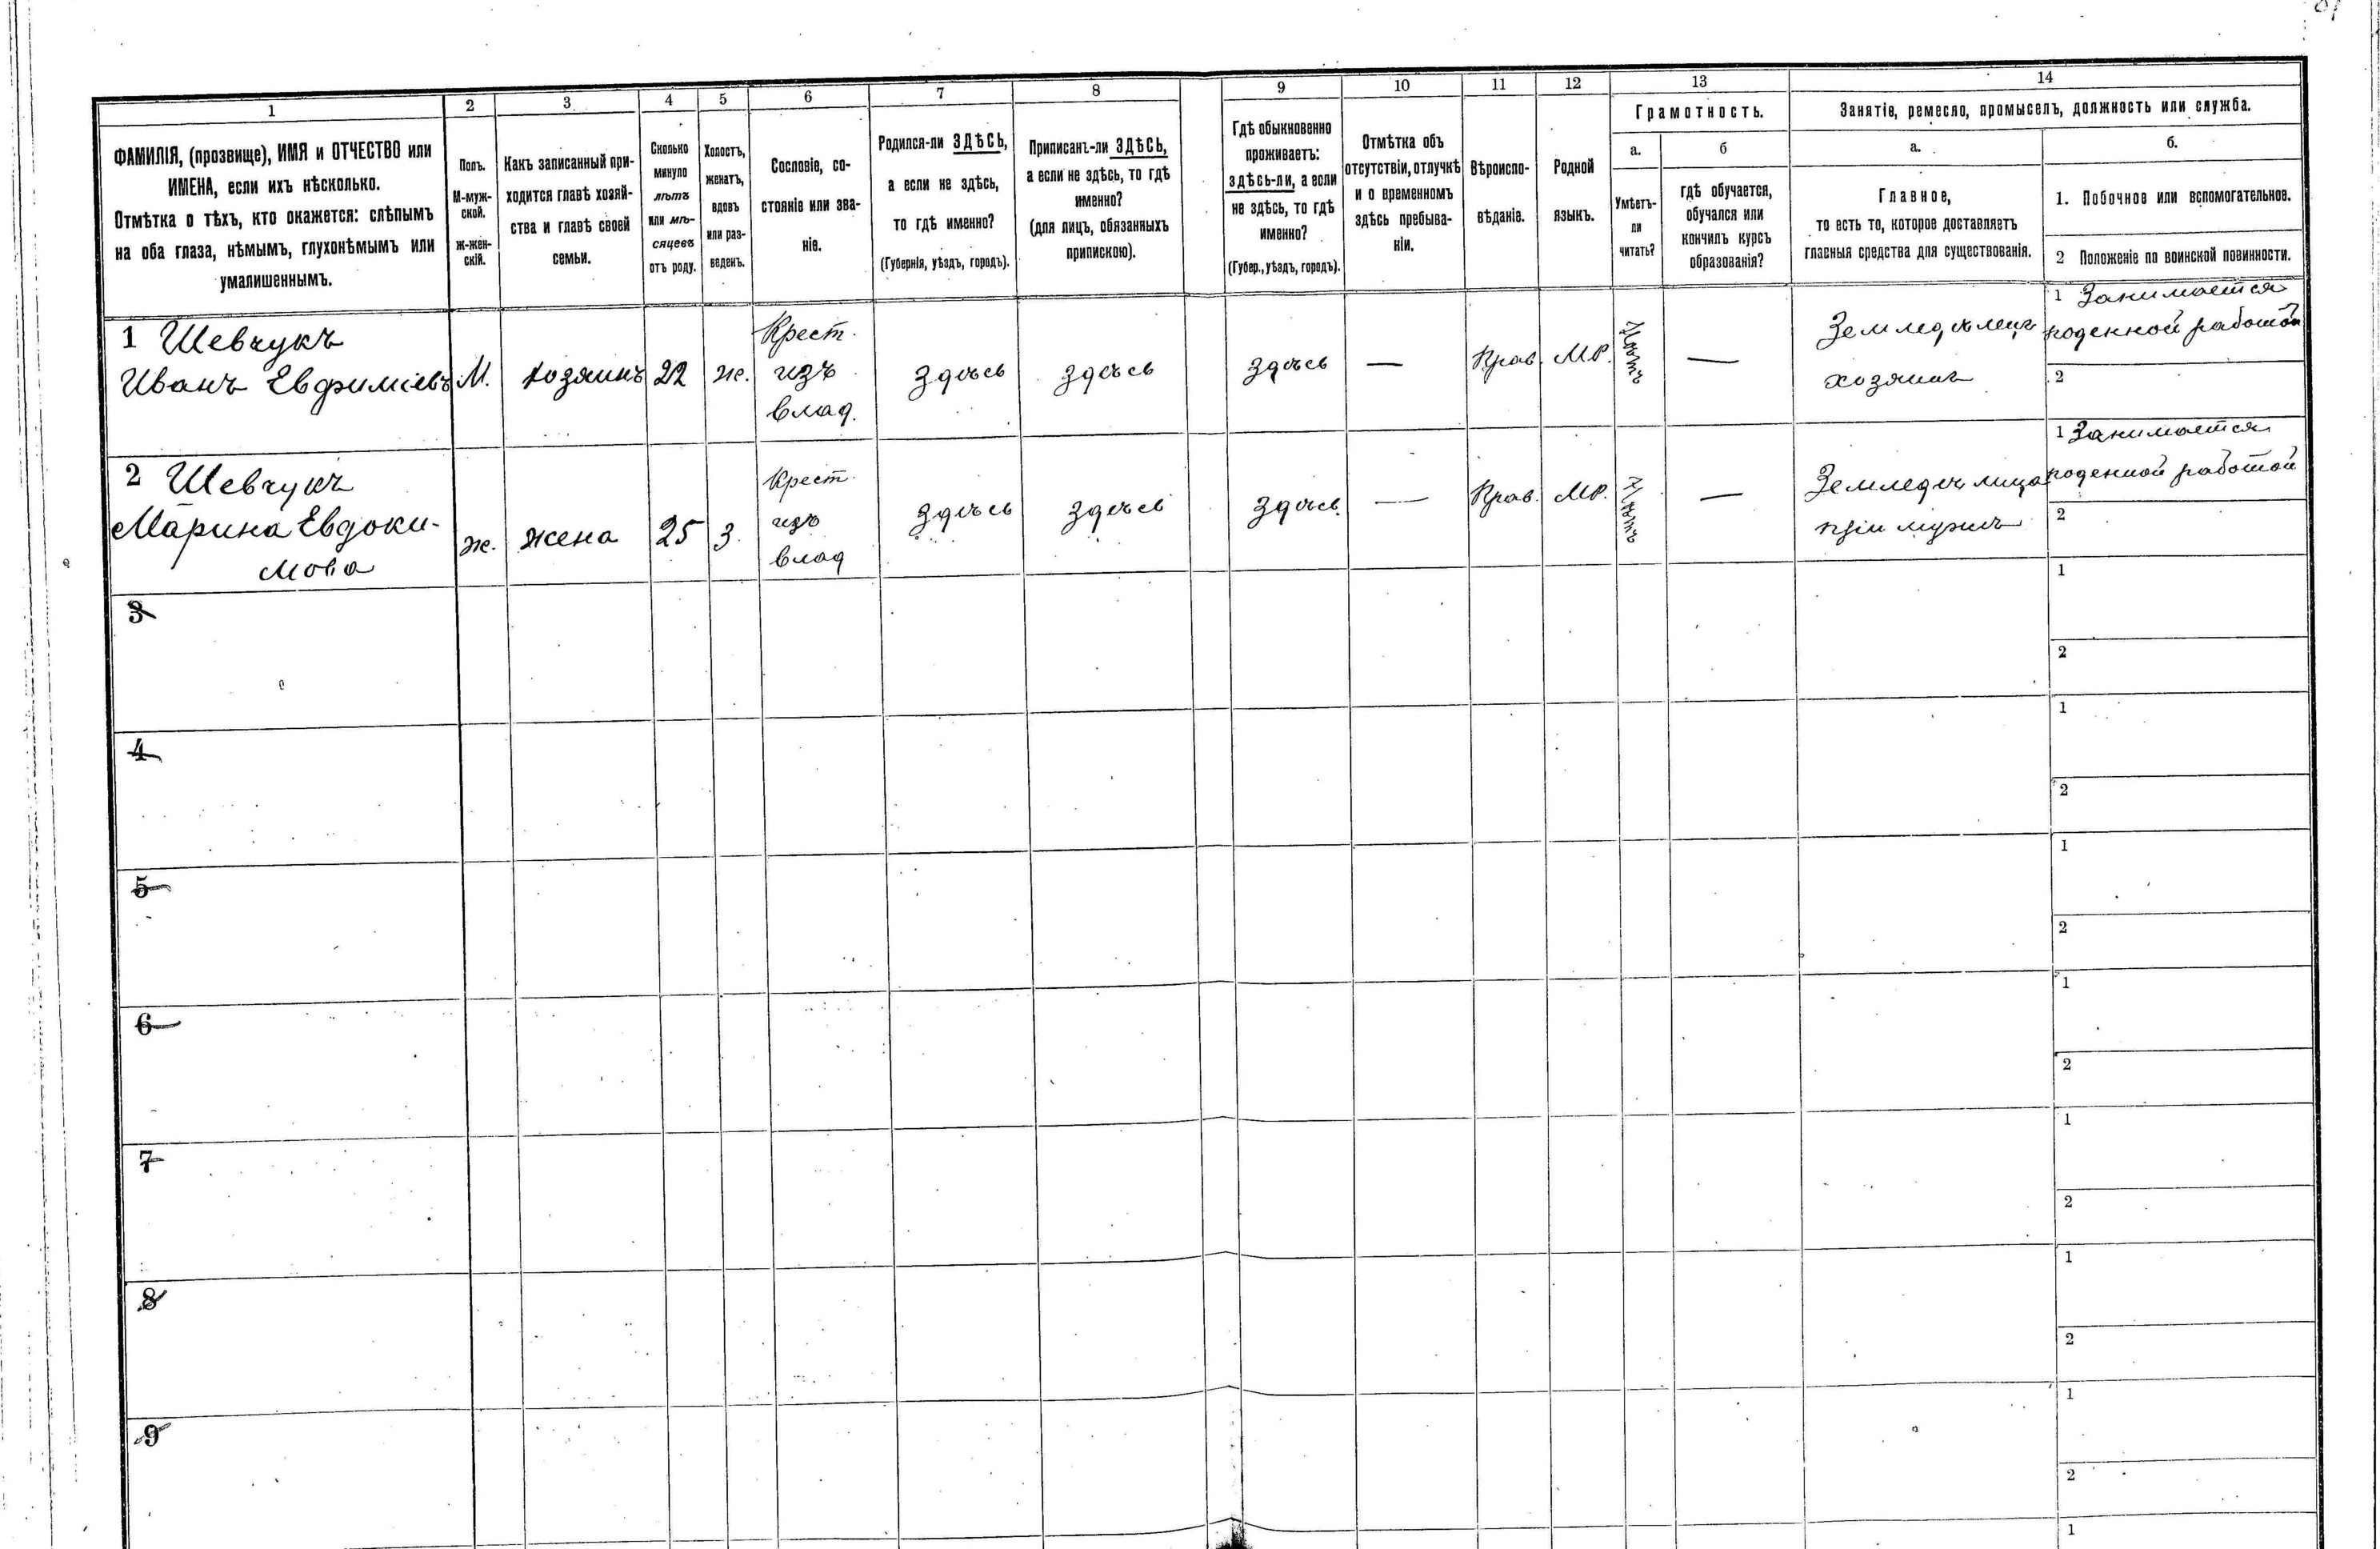 1
2
3
4
5
6
7
8
9
10
11
12
13
14
ФАМИЛІЯ, (прозвище), ИМЯ и ОТЧЕСТВО или
ИМЕНА, если ихъ нѣсколько.
Отмѣтка о тѣхъ, кто окажется: слѣпымъ
на оба глаза, нѣмымъ, глухонѣмымъ или
умалишеннымъ.
Полъ.
М-муж-
ской.
ж-жен-
скій.
Какъ записанный при-
ходится главѣ хозяй-
ства и главѣ своей
семьи.
Сколько
минуло
лѣтъ
или мѣ-
сяцевъ
отъ роду.
Холостъ,
женатъ,
вдовъ
или раз-
веденъ.
Сословіе, со-
стояніе или зва-
ніе.
Родился-ли ЗДѢСЬ,
а если не здѣсь,
то гдѣ именно?
(Губернія, уѣздъ, городъ).
Приписанъ-ли ЗДѢСЬ,
а если не здѣсь, то гдѣ
именно?
(для лицъ, обязанныхъ
припискою).
Гдѣ обыкновенно
проживаетъ:
здѣсь-ли, а если
не здѣсь, то гдѣ
именно?
(Губер., уѣздъ, городъ).
Отмѣтка объ
отсутствіи, отлучкѣ
и о временномъ
здѣсь пребыва-
ніи.
Вѣроиспо-
вѣданіе.
Родной
языкъ.
Грамотность.
а.
Умѣетъ-
ли
читать?
б
гдѣ обучается,
обучался или
кончилъ курсъ
образованія?
Занятіе, ремесло, промыселъ, должность или служба.
а.
Главное,
то есть то, которое доставляетъ
главныя средства для существованія.
б.
1. Побочное или вспомогательное.
2 Положеніе по воинской повинности.
1 Шевчукъ
Иванъ Евфиміевъ
М.
хозяинъ
22
ж.
Крест.
изъ
влад.
здѣсь
здѣсь
здѣсь
—
Прав.
МР.
Нѣтъ
—
Земледѣлецъ
хозяинъ
1 Занимается
поденной работой
2
2 Шевчукъ
Марина Евдоки-
мова
ж.
жена
25
З.
Крест.
изъ
влад
здѣсь
здѣсь
здѣсь
—
Прав.
МР.
Нѣтъ
—
Земледѣлица
при мужѣ
1 Занимается
поденной работой
2
3
1
2
4
1
2
5
1
2
6
1
2
7
1
2
8
1
2
9
1
2
1